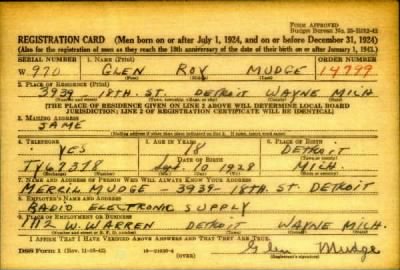 FORM APPROVED
REGISTRATION CARD (Men born on or after July 1, 1924, and on or before December 31, 1924)
(Also for the registration of men as they reach the 18th anniversary of the date of their birth on or after January 1, 1943.)
SERIAL NUMBER 1. NAME (Print) ORDER NUMBER
W 970 GLEN ROY MUDGE 14799
2. PLACE OF RESIDENCE (Print)
3939 - 18TH. ST. DETROIT WAYNE MICH
(THE PLACE OF RESIDENCE GIVEN ON LINE 2 ABOVE WILL DETERMINE LOCAL BOARD
JURISDICTION; LINE 2 OF REGISTRATION CERTIFICATE WILL BE IDENTICAL)
3. MAILING ADDRESS
SAME
4. TELEPHONE 5. AGE IN YEARS 6. PLACE OF BIRTH
YES 18 DETROIT
DATE OF BIRTH
TY 67378 10 1928 MICH.
7. NAME AND ADDRESS OF PERSON WHO WILL ALWAYS KNOW YOUR ADDRESS
MERCIL MUDGE - 3939 - 18TH. ST. DETROIT
8. EMPLOYER'S NAME AND ADDRESS
RADIO ELECTRONIC SUPPLY
9. PLACE OF EMPLOYMENT OR BUSINESS
1112 W. WARREN DETROIT WAYNE MICH.
I AFFIRM THAT I HAVE VERIFIED ABOVE ANSWERS AND THAT THEY ARE TRUE.
DSS Form 1 Glen Mudge